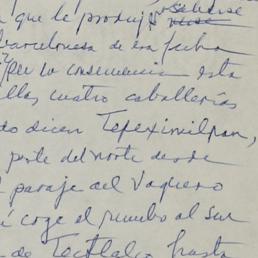 que le produj
de esa fecha
por la consecuencia esta
llas cuatro caballerías
do dicen Tepeximilpan,
parte del norte desde
paraje del Vaquero
í coge el rumbo al Sur
de Tectlalco hasta